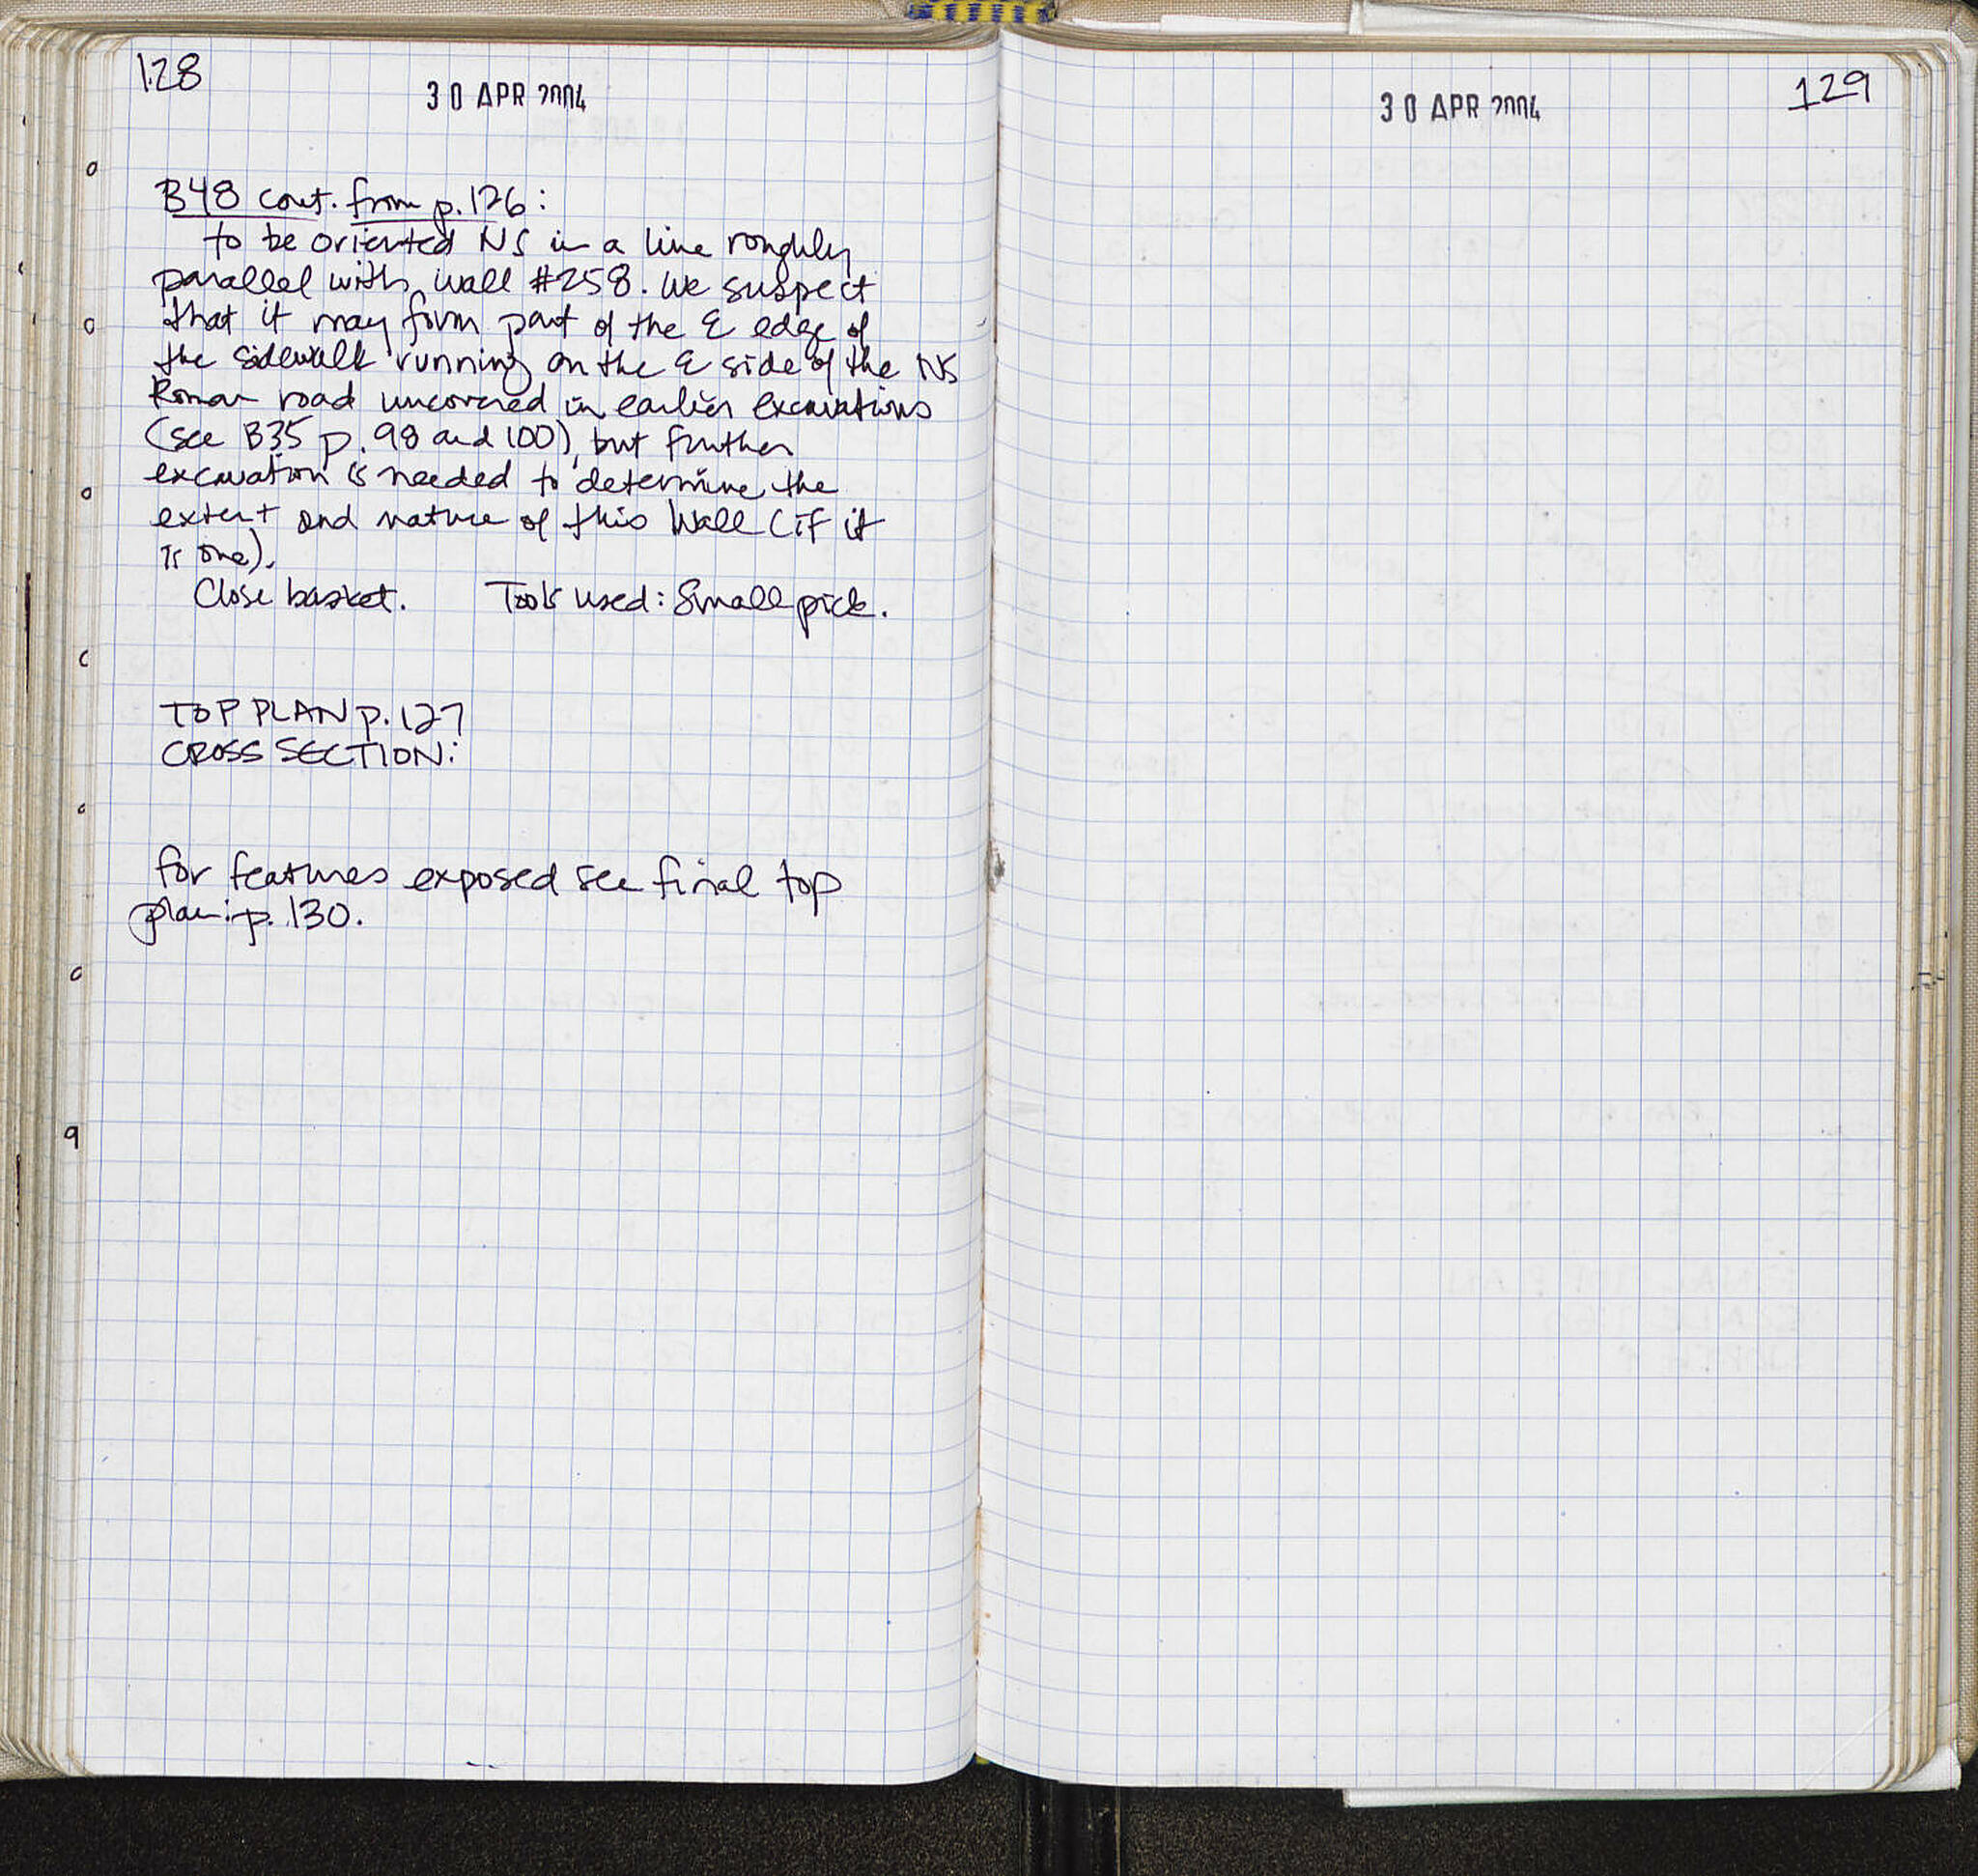 128
30 APR 2004
B48 cont. from p. 126:
to be oriented NS in a line roughly
parallel with wall #258. We suspect
that it may form part of the E edge of
the sidewalk running on the E side of the NS
Roman road uncovered in earlier excavations
(see B35 p. 98 and 100), but further
excavation is needed to determine the
extent and nature of this wall (if it
is one).
Close basket. Tools used: Small pick.
TOP PLAN p. 127
CROSS SECTION:
for features exposed see final top
plan: p. 130.
30 APR 2004
129